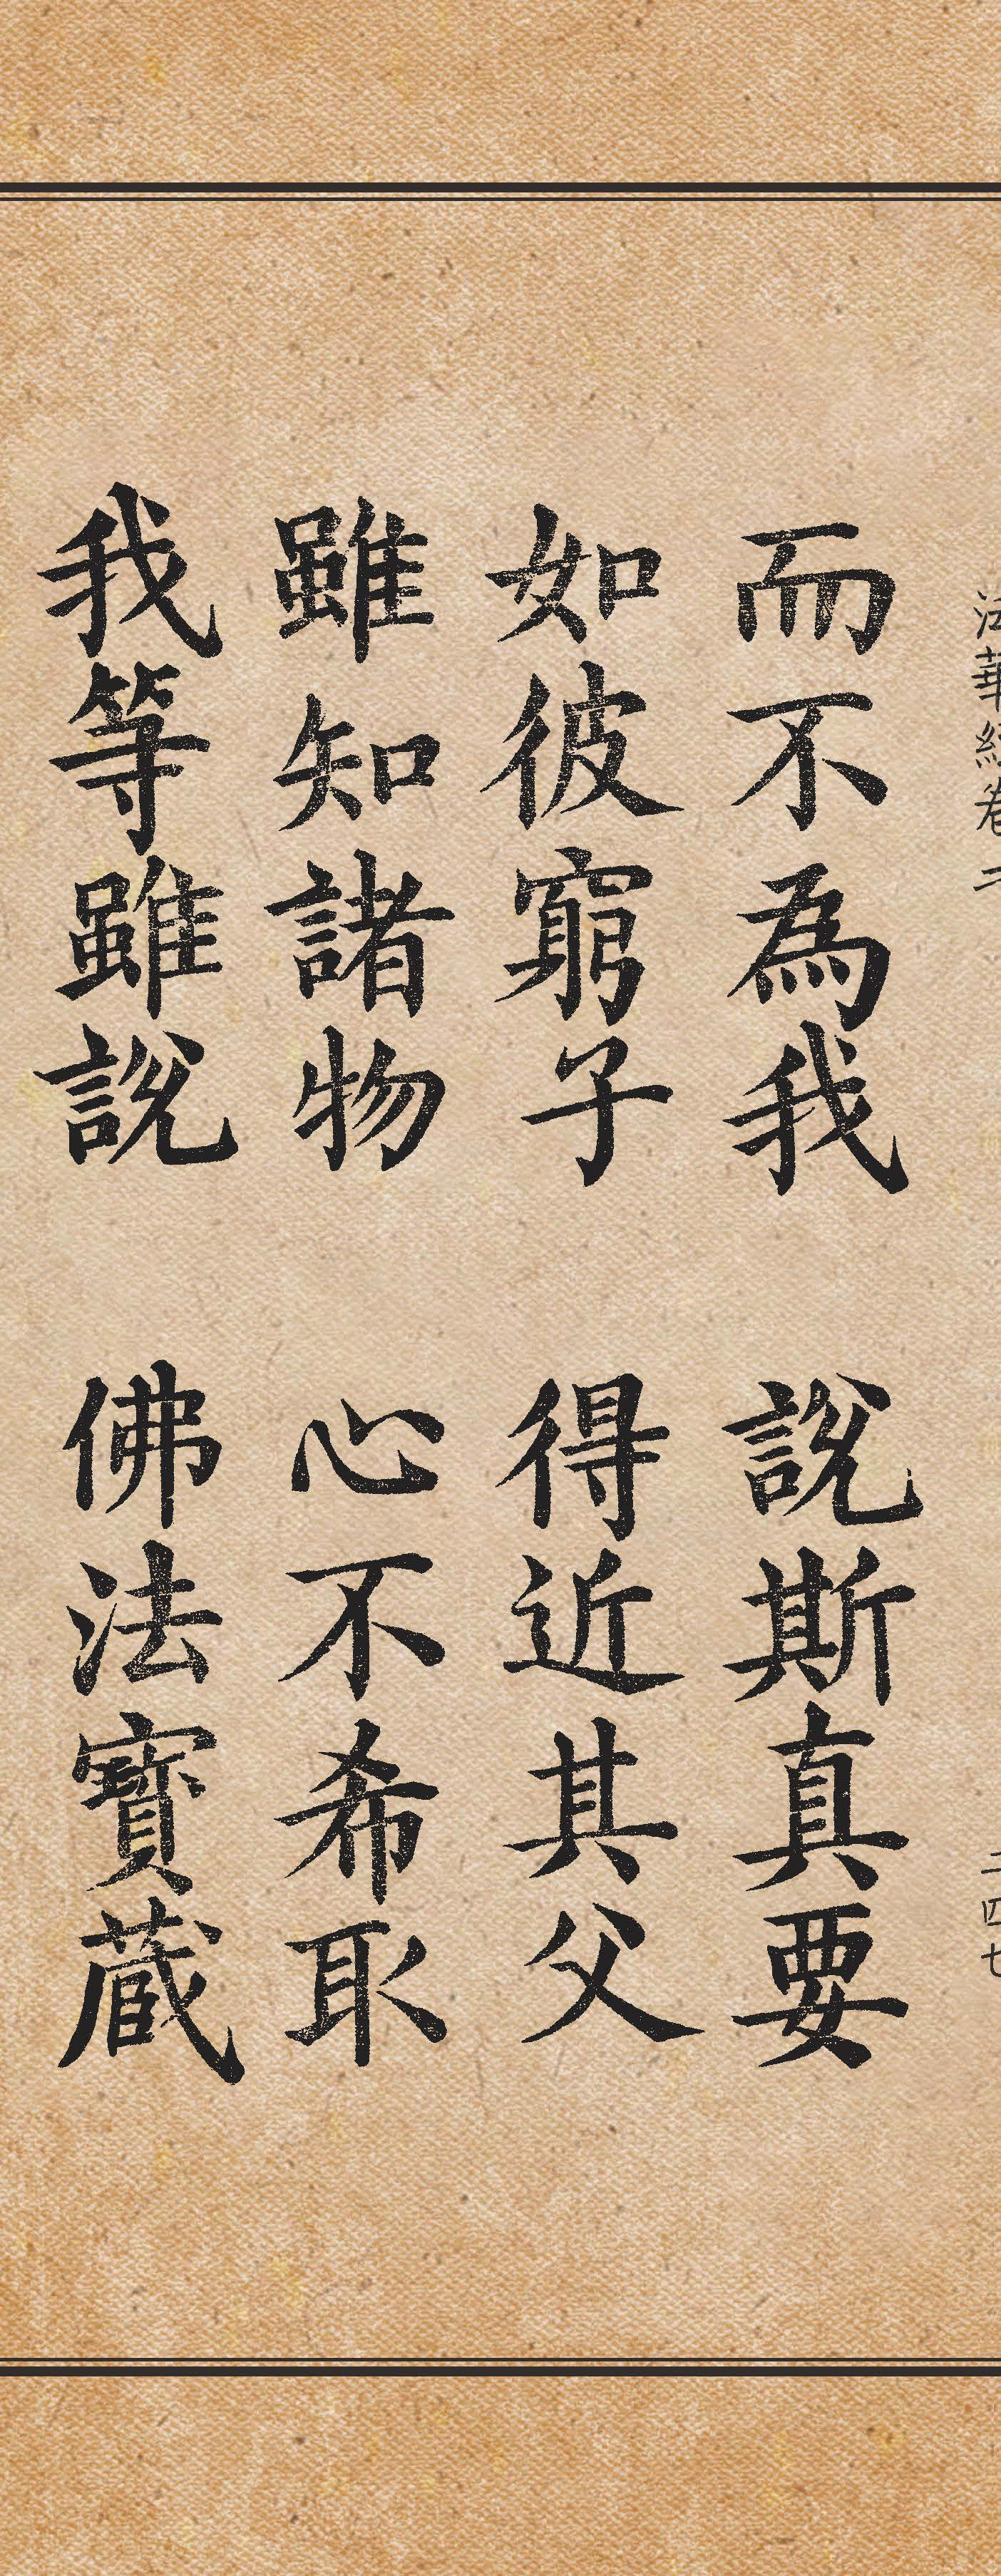 法華經卷二
二四七
而不為我 說斯真要
如彼窮子 得近其父
雖知諸物 心不希取
我等雖說 佛法寶藏